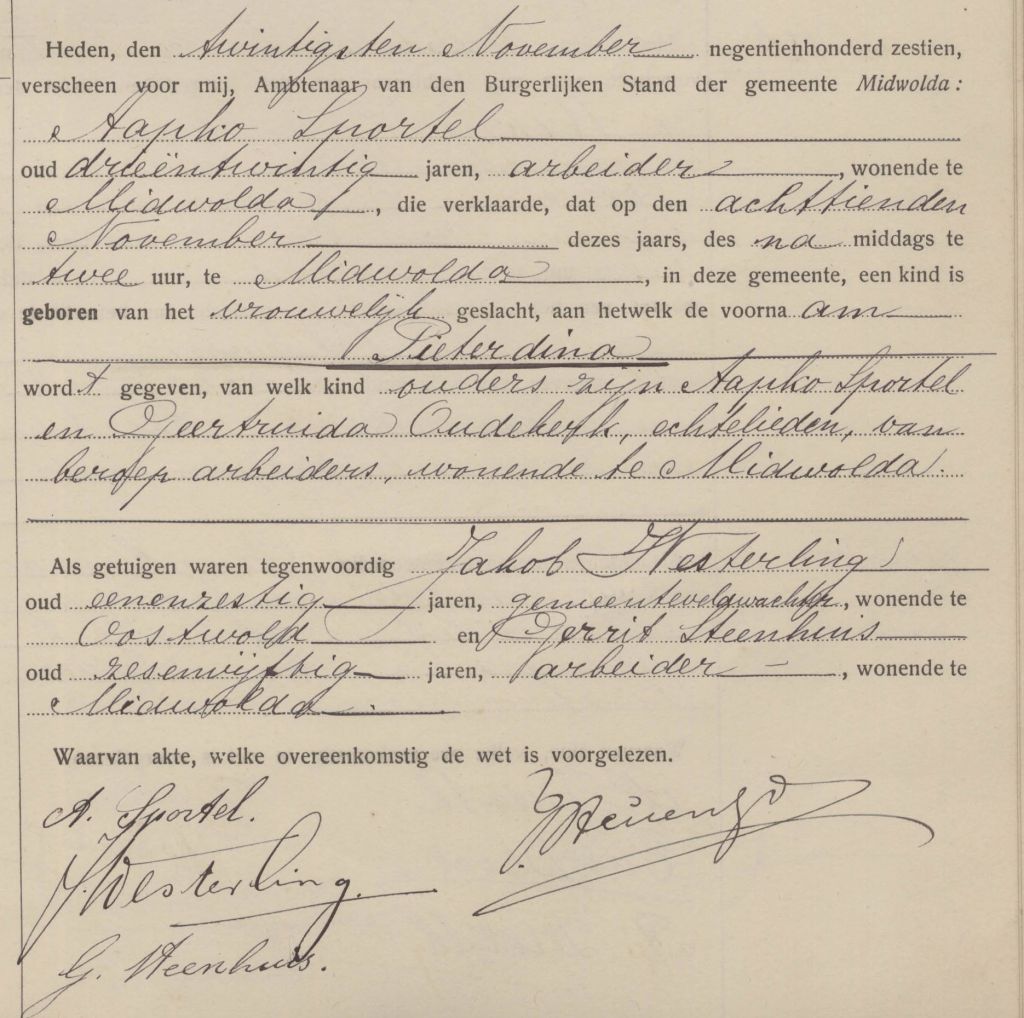 Heden, den twintigsten November negentienhonderd zestien,
verscheen voor mij, Ambtenaar van den Burgerlijken Stand der gemeente Midwolda:
Aapko Sportel
oud drieëntwintig jaren, arbeider, wonende te
Midwolda, die verklaarde, dat op den achttienden
November dezes jaars, des na middags te
twee uur, te Midwolda, in deze gemeente, een kind is
geboren van het vrouwelijk geslacht, aan hetwelk de voorna am
Pieterdina
wordt gegeven, van welk kind ouders zijn Aapko Sportel
en Geertruida Oudekerk, echtelieden, van
beroep arbeiders, wonende te Midwolda.
Als getuigen waren tegenwoordig Jakob Westerling
oud eenenzestig jaren, gemeenteveldwachter, wonende te
Oostwold en Gerrit Steenhuis
oud zesenvijftig jaren, arbeider, wonende te
Midwolda.
Waarvan akte, welke overeenkomstig de wet is voorgelezen.
A. Sportel.
J. Westerling.
G. Steenhuis.